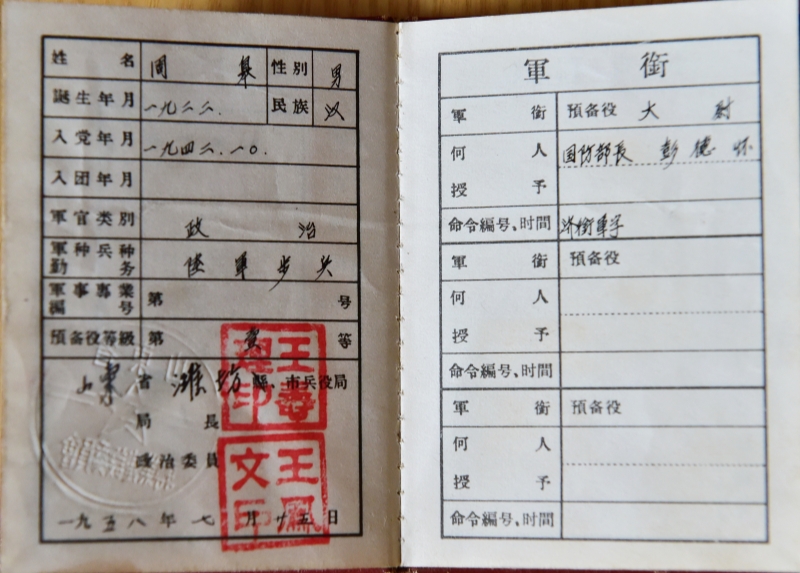 姓名 周 性别 男
誕生年月 一九二二. 民族 汉
入党年月 一九四二.一〇.
入团年月
軍官类别 政治
軍种兵种勤务 陸軍步兵
軍事專業編号 第 号
預备役等級 第 壹 等
山東省 潍坊縣、市兵役局
局長
政治委員
王壽運印
王鳳文印
一九五八年七月十五日
軍銜
軍銜 預备役 大尉
何人 国防部長 彭德怀
授予
命令編号、时间 济衔軍字
軍銜 預备役
何人
授予
命令編号、时间
軍銜 預备役
何人
授予
命令編号、时间